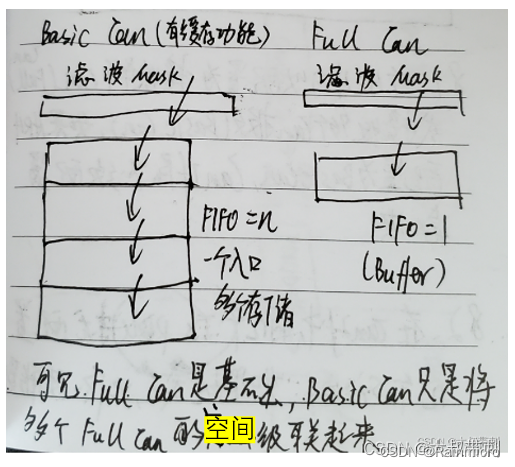 Basic Can (有缓存功能)
Full Can
滤波 Mask
滤波 Mask
FIFO=n
一个入口
多个存储
FIFO=1
(Buffer)
可见 Full Can是基础, Basic Can只是将
多个 Full Can 的空间级联起来
CSDN @Rammord